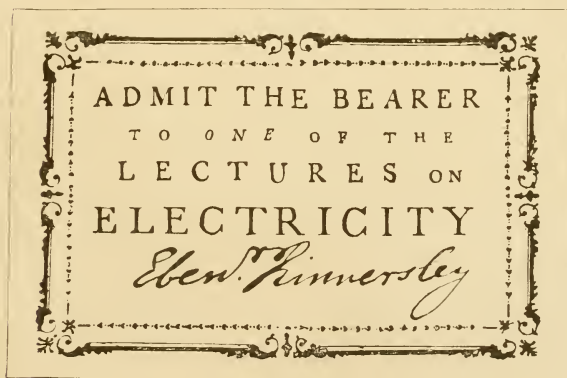 ADMIT THE BEARER
TO ONE OF THE
LECTURES ON
ELECTRICITY
Eben.r Kinnersley